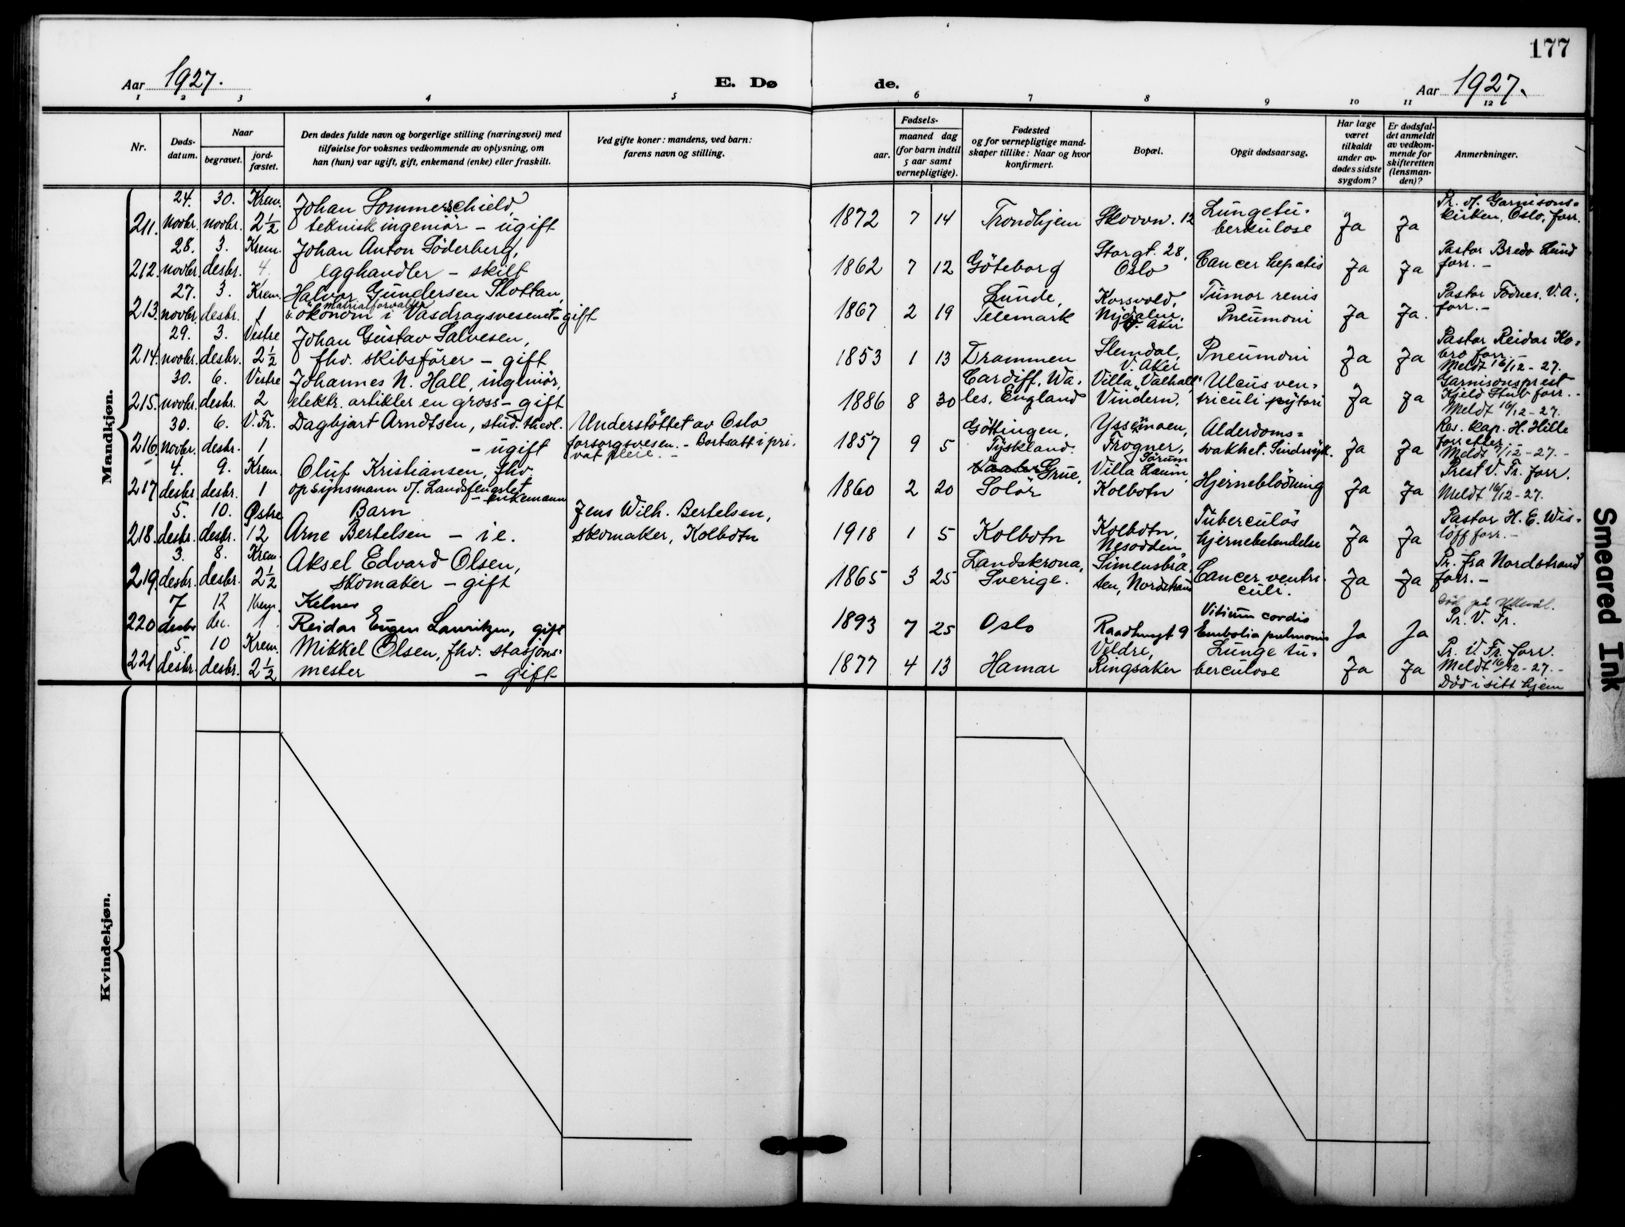 177
Aar 1927.
E. Dø
de.
Aar 1927.
1 2 3 4 5 6 7 8 9 10 11 12
Nr.
Døds-
datum.
Naar
begravet.
jord-
fæstet.
Den dødes fulde navn og borgerlige stilling (næringsvei) med
tilføielse for voksnes vedkommende av oplysning, om
han (hun) var ugift, gift, enkemand (enke) eller fraskilt.
Ved gifte koner: mandens, ved barn:
farens navn og stilling.
Fødsels-
aar.
maaned dag
(for barn indtil
5 aar samt
vernepligtige).
Fødested
og for vernepligtige mand-
skaper tillike: Naar og hvor
konfirmert.
Bopæl.
Opgit dødsaarsag.
Har læge
været
tilkaldt
under av-
dødes sidste
sygdom?
Er dødsfal-
det anmeldt
av vedkom-
mende for
skifteretten
(lensman-
den)?
Anmerkninger.
Mandkjøn.
24. 30. Krem. Johan Sommerschield Lungetu- Pr. v/ Garnisons-
211. novbr. novbr. 2½ teknisk ingeniør - ugift 1872 7 14 Trondhjem Skovvn. 12 berkulose Ja Ja kirken, Oslo, forr.
28. 3. Krem. Johan Anton Söderberg, Storgt. 28, Pastor Bredo Lund
212. novbr. desbr. 4. Egghandler - skilt 1862 7 12 Göteborg Oslo Cancer hepatis Ja Ja forr. -
27. 3. Krem. Halvor Gundersen Slottan, Lunde, Korsvold, Tumor renis Pastor Fodnes, V.A.,
materialforvalter
213. novbr. desbr. 1 & økonom i Vasdragsvesenet - gift 1867 2 19 Telemark Nydalen, V. Aker Pneumoni Ja Ja. forr. -
29. 3. Vestre Johan Gustav Salvesen, Slemdal, Pastor Reidar Ko-
214. novbr. desbr. 2½ fhv. skibsfører - gift 1853 1 13 Drammen V. Aker Pneumoni Ja Ja bro forr. -
Meldt 16/12 - 27.
30. 6. Vestre Johannes N. Hall, ingeniør, Cardiff, Wa- Villa "Valhall" Ulcus ven- Garnisonsprest
215. novbr. desbr. 2 elektr. artikler en gross - gift 1886 8 30 les, England Vindern, triculi pylori Ja Ja Kjeld Stub forr. -
Meldt 16/12 - 27.
30. 6. V. Fr. Dagbjart Arndtsen, stud. theol. Understöttet av Oslo Göttingen, Alderdoms- Res. kap. H. Hille
216. novbr. desbr. - ugift forsorgsvesen. - Bortsatt i pri- 1857 9 5 Tyskland. Frogner, Sörum svakhet. Ja Ja forretter
vat pleie. - Meldt 16/12 - 27. -
4. 9. Krem. Oluf Kristiansen, fhv. Grue, Villa Prest V. Fr. forr.
217 desbr. desbr. 1 opsynsmann v/ Landsfengslet - enkemann 1860 2 20 Solör Kolbotn Hjerneblödning Ja Ja Meldt 16/12 - 27.
5. 10. Østre Barn Jens Wilh. Bertelsen, Kolbotn, Tuberculös Pastor H. E. Wis-
218. desbr. desbr. 12 Arne Bertelsen - i.e. skomaker, Kolbotn 1918 1 5 Kolbotn Nesodden, hjernebetendelse Ja Ja löff forr. -
3. 8. Krem. Aksel Edvard Olsen, Landskrona, Simensbrå- Pr. fra Nordstrand
219. desbr. desbr. 2½ Skomaker - gift 1865 3 25 Sverige. ten, Nordstrand Cancer ventri- culi. Ja Ja forr. -
7 12 Krem. Kelner Vitium cordis Död på Ullevål.
220 desbr dec. 1. Reidar Eugen Lauritzen, gift 1893 7 25 Oslo Raadhusgt 9 Embolia pulmonis Ja Ja Pr. V. Fr.
5. 10 Krem. Mikkel Olsen, fhv. stasjons- Veldre, Lunge tu- Pr. V. Fr. forr.
221 desbr. desbr. 2½ mester - gift 1877 4 13 Hamar Ringsaker berculose Ja Ja Meldt 16/12 - 27. -
Död i sitt hjem
Kvindekjøn.
Smeared Ink